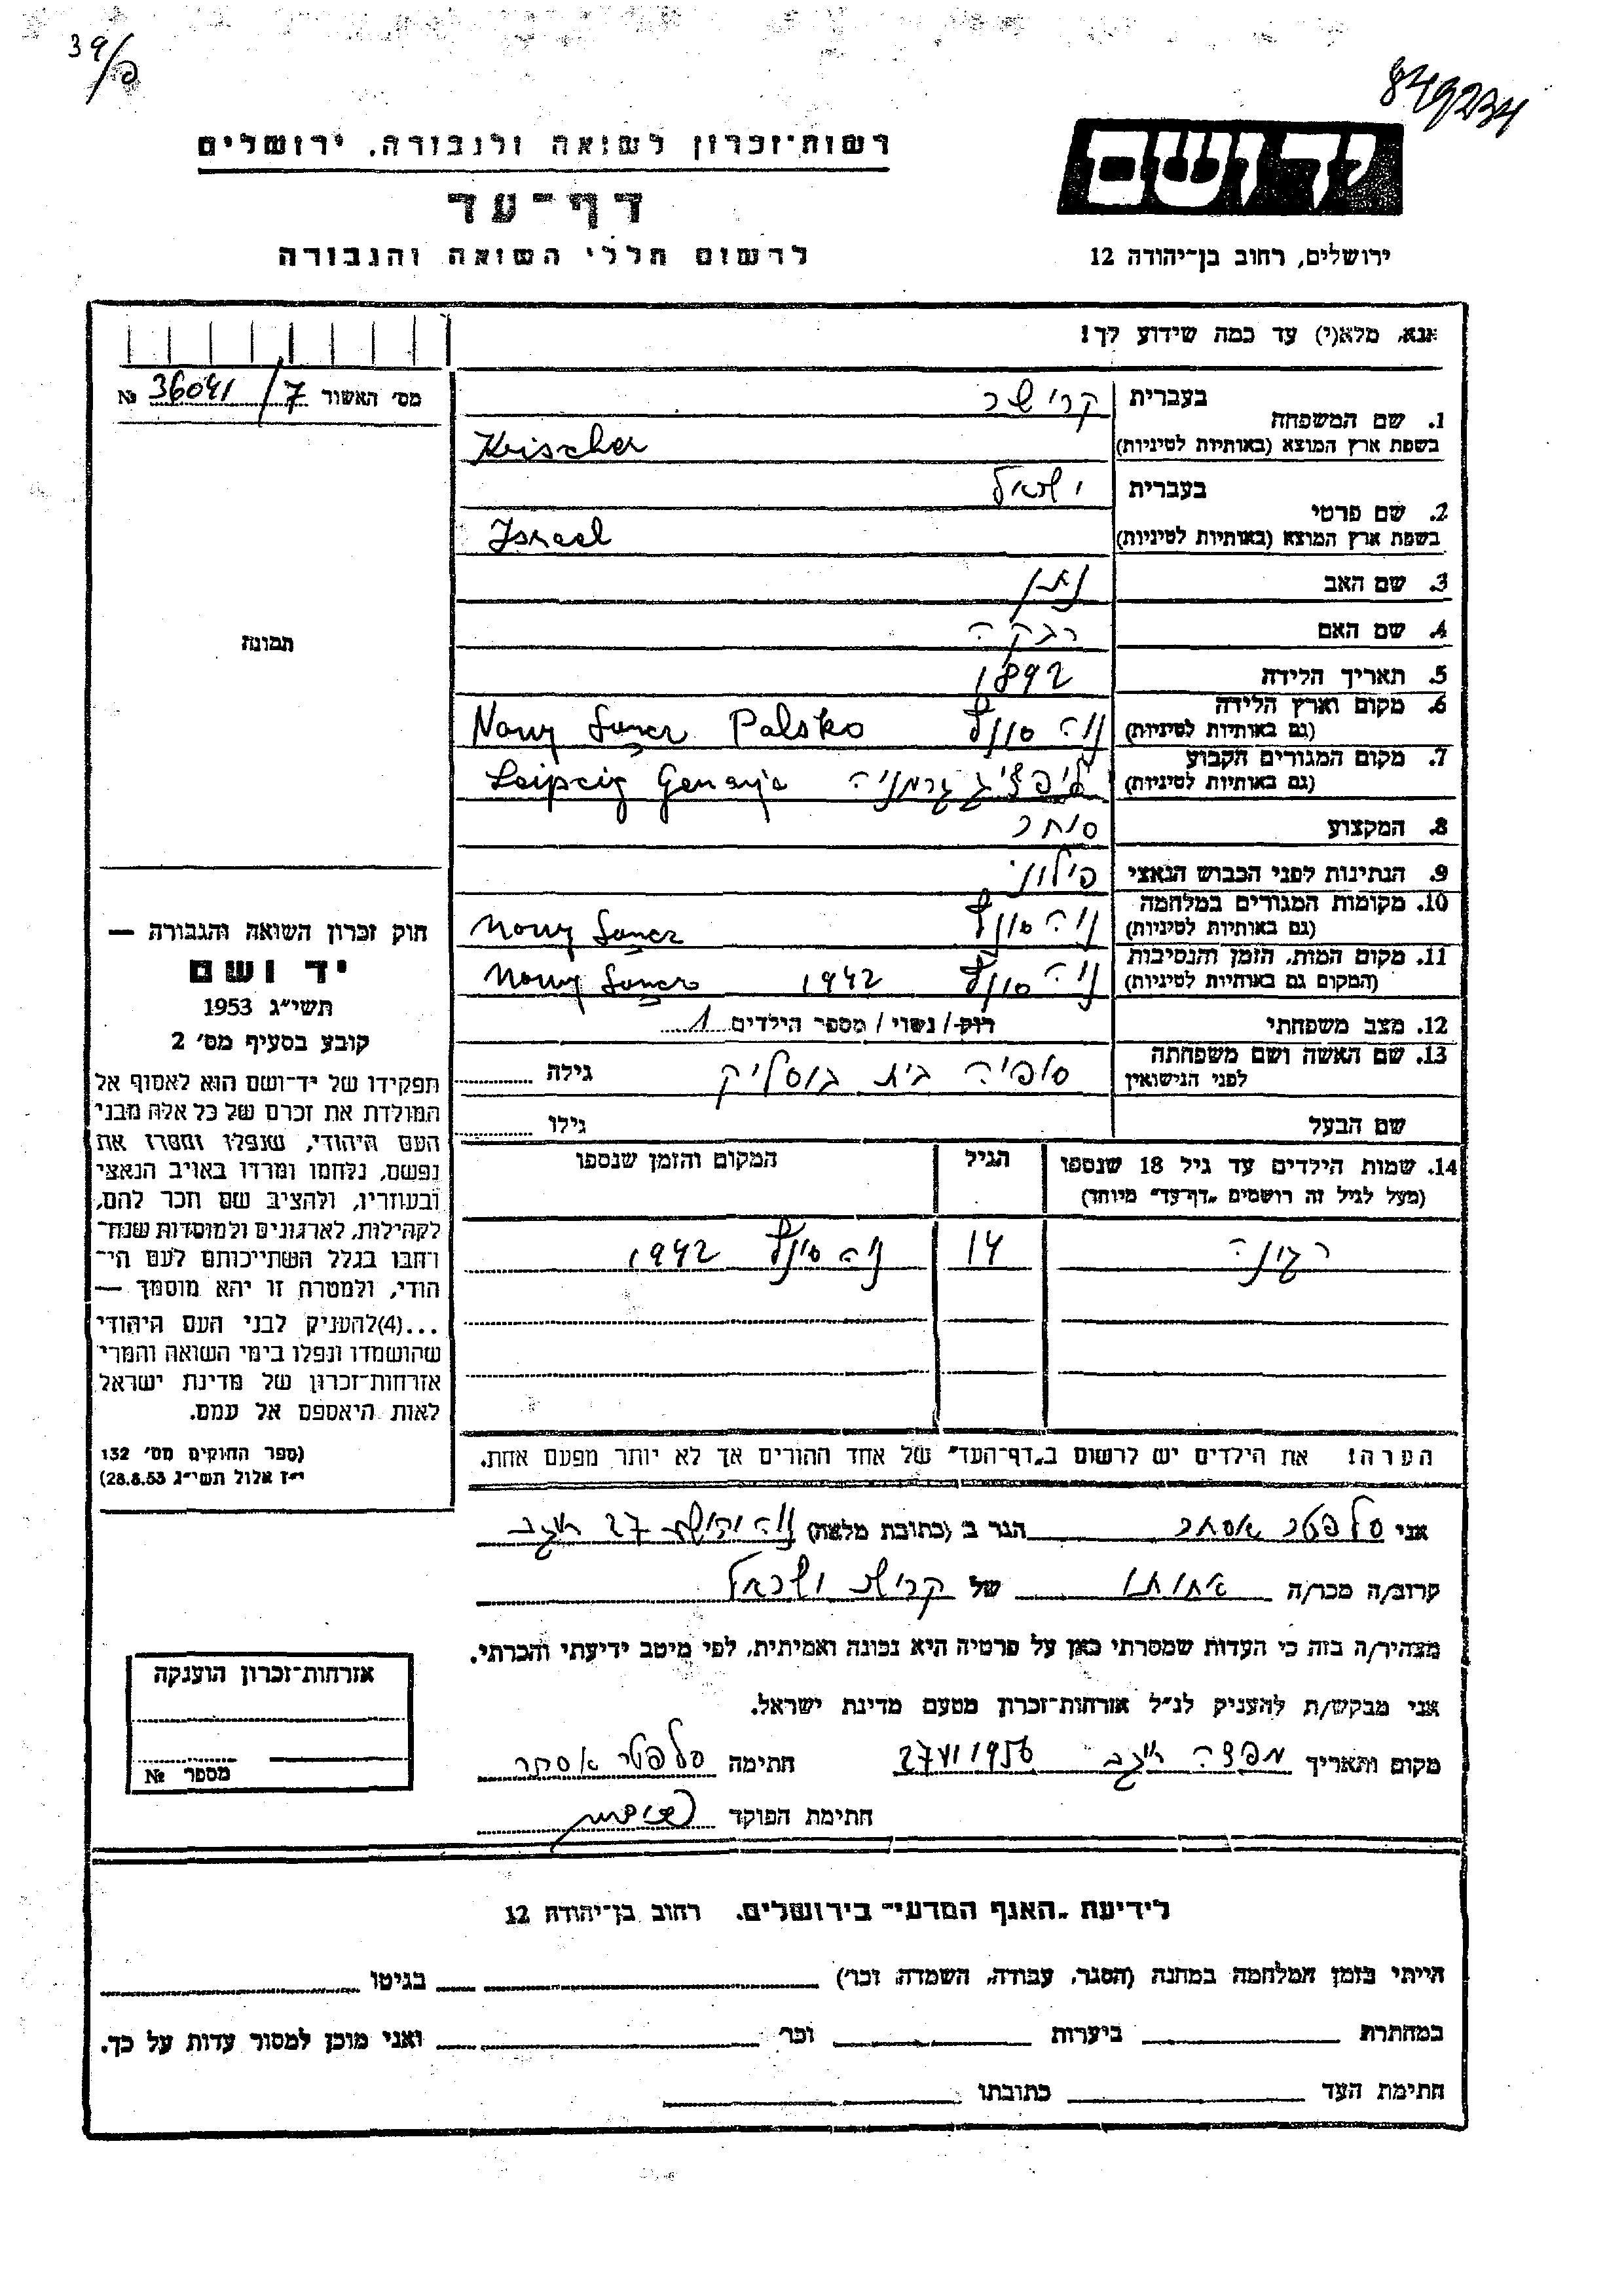 39/פ
849234
רשות־זכרון לשואה ולגבורה, ירושלים
דף־עד
לרשום חללי השואה והגבורה
יד ושם
ירושלים, רחוב בן־יהודה 12
אנא, מלא(י) עד כמה שידוע לך!
מס׳ האשור 36041/7 №
1. שם המשפחה
בעברית קרישר
בשפת ארץ המוצא (באותיות לטיניות) Krischer
2. שם פרטי
בעברית ישראל
בשפת ארץ המוצא (באותיות לטיניות) Israel
3. שם האב נתן
4. שם האם רבקה
5. תאריך הלידה 1892
6. מקום וארץ הלידה
(גם באותיות לטיניות) Nowy Sancz Polsko
7. מקום המגורים הקבוע
(גם באותיות לטיניות) לייפציג גרמניה Leipzig
8. המקצוע סוחר
9. הנתינות לפני הכבוש הנאצי פילוני
10. מקומות המגורים במלחמה
(גם באותיות לטיניות) Nowy Sancz
11. מקום המות, הזמן והנסיבות
(המקום גם באותיות לטיניות) 1942 Nowy Sancz
12. מצב משפחתי רוק / נשוי / מספר הילדים 1
13. שם האשה ושם משפחתה
לפני הנישואין סופיה בית גוסליק גילה
שם הבעל גילו
14. שמות הילדים עד גיל 18 שנספו הגיל המקום והזמן שנספו
(מעל לגיל זה רושמים „דף־עד״ מיוחד)
רגינה 14 1942
הערה: את הילדים יש לרשום ב„דף־העד״ של אחד ההורים אך לא יותר מפעם אחת.
תמונה
חוק זכרון השואה והגבורה —
יד ושם
תשי״ג 1953
קובע בסעיף מס׳ 2
תפקידו של יד־ושם הוא לאסוף אל
המולדת את זכרם של כל אלה מבני
העם היהודי, שנפלו ומסרו את
נפשם, נלחמו ומרדו באויב הנאצי
ובעוזריו, ולהציב שם וזכר להם,
לקהילות, לארגונים ולמוסדות שנח־
רחבו בגלל השתייכותם לעם הי־
הודי, ולמטרה זו יהא מוסמך —
...(4)להעניק לבני העם היהודי
שהושמדו ונפלו בימי השואה והמרי
אזרחות־זכרון של מדינת ישראל
לאות היאספם אל עמם.
(ספר החוקים מס׳ 132
י״ז אלול תשי״ג 28.8.53)
אני סלפטר אסתר הגר ב (כתובת מלאה) 27
קרוב/ה מכר/ה אחותו של קרישר ישראל
מצהיר/ה בזה כי העדות שמסרתי כאן על פרטיה היא נכונה ואמיתית, לפי מיטב ידיעתי והכרתי.
אני מבקש/ת להעניק לנ״ל אזרחות־זכרון מטעם מדינת ישראל.
מקום ותאריך 27 VI 1956 חתימה סלפטר אסתר
חתימת הפוקד
אזרחות־זכרון הוענקה
מספר №
לידיעת „האגף המדעי״ בירושלים, רחוב בן־יהודה 12
הייתי בזמן המלחמה במחנה (הסגר, עבודה, השמדה וכר׳) בגיטו
במחתרת ביערות וכר׳ ואני מוכן למסור עדות על כך.
חתימת העד כתובתו